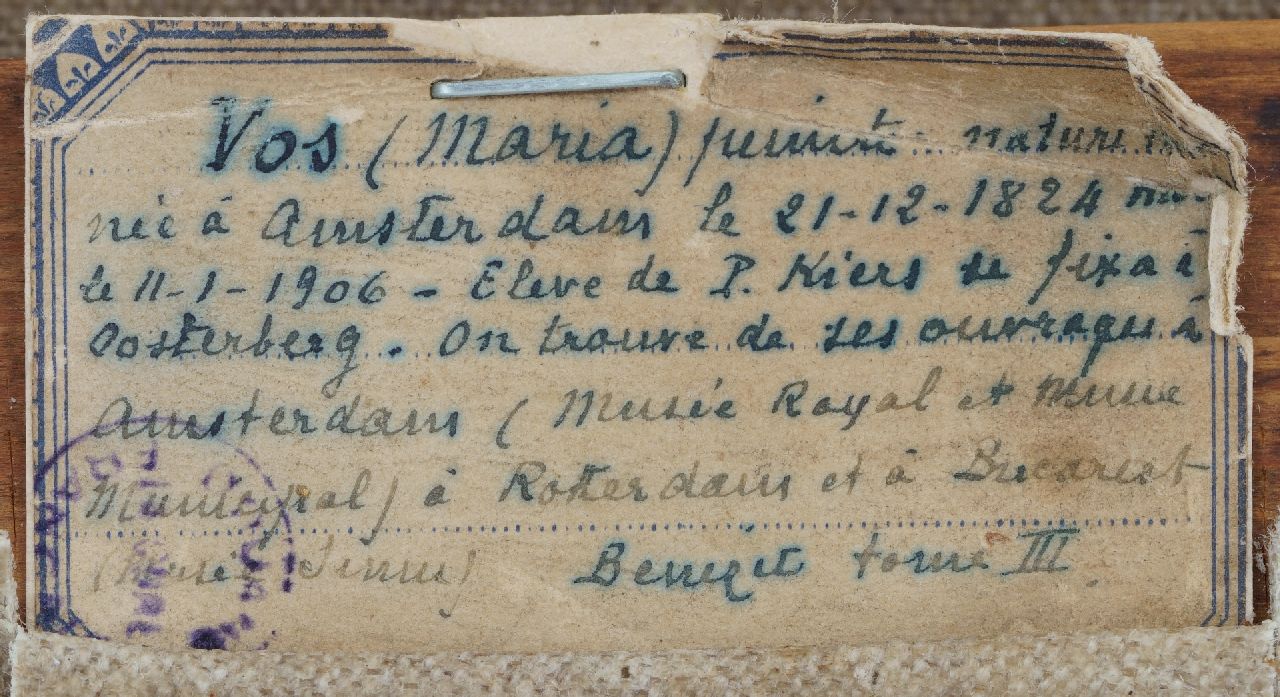 Vos (Maria) peintre nature
née à Amsterdam le 21-12-1824
le 11-1-1906 - Eleve de P. Kiers se fixa à
Oosterberg. On trouve de ses ouvrages à
Amsterdam (Musée Royal et Musée
Municipal) à Rotterdam et à Bucarest
(Musée Simu) Benezit tome III.